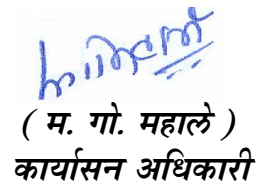 ( म. गो. महाले )
कार्यासन अधिकारी